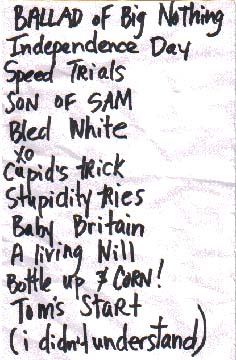 BALLAD of Big Nothing
Independence Day
Speed Trials
SON OF SAM
Bled White
XO
Cupid's tRick
Stupidity tRies
Baby Britain
A living Will
Bottle up & CORN!
Tom's StaRt
(i didn't understand)